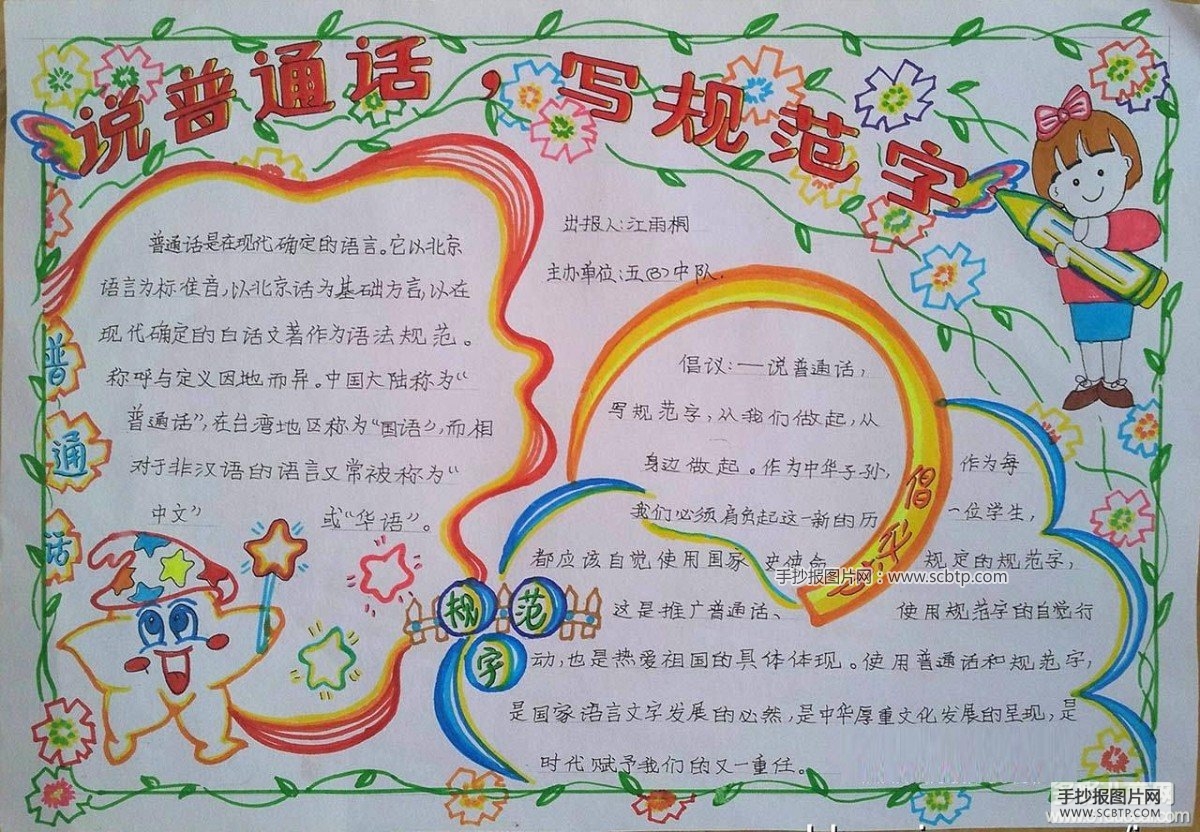 说普通话，写规范字
出报人:江雨桐
主办单位:五(3)中队.
普通话是在现代确定的语言。它以北京
语言为标准音,以北京话为基础方言,以在
现代确定的白话文著作为语法规范。
称呼与定义因地而异。中国大陆称为“
普通话”,在台湾地区称为“国语”,而相
对于非汉语的语言又常被称为“
中文” 或“华语”。
普
通
话
规 范
字
倡议:一说普通话,
写规范字,从我们做起,从
身边做起。作为中华子孙, 作为每
我们必须肩负起这一新的历 一位学生,
都应该自觉使用国家 史使命 规定的规范字,
这是推广普通话、 使用规范字的自觉行
动,也是热爱祖国的具体体现。使用普通话和规范字,
是国家语言文字发展的必然,是中华厚重文化发展的呈现,是
时代赋予我们的又一重任。
倡
手抄报图片网：www.scbtp.com
手抄报图片网
WWW.SCBTP.COM